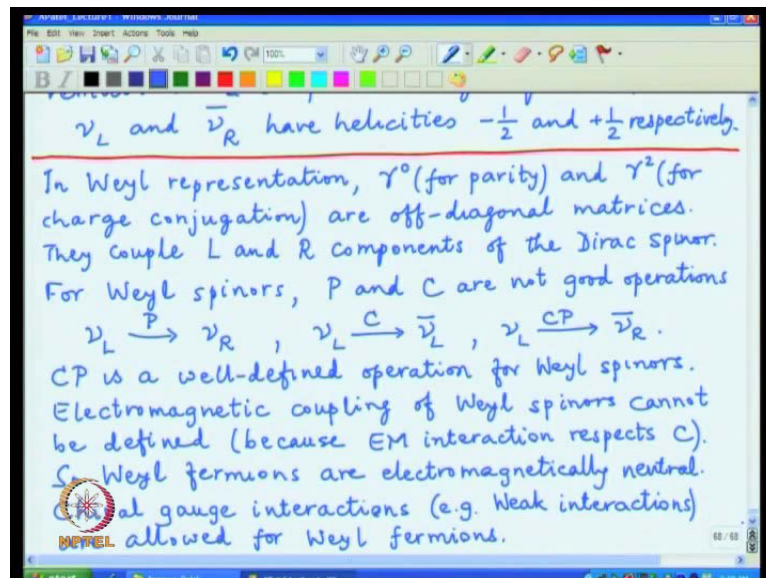 APatel_Lecture1 - Windows Journal
File Edit View Insert Actions Tools Help
100%
B I
ν_L and ν̄_R have helicities -1/2 and +1/2 respectively.
In Weyl representation, γ⁰ (for parity) and γ² (for
charge conjugation) are off-diagonal matrices.
They couple L and R components of the Dirac spinor.
For Weyl spinors, P and C are not good operations
ν_L —P→ ν_R , ν_L —C→ ν̄_L , ν_L —CP→ ν̄_R .
CP is a well-defined operation for Weyl spinors.
Electromagnetic coupling of Weyl spinors cannot
be defined (because EM interaction respects C).
So Weyl fermions are electromagnetically neutral.
Chiral gauge interactions (e.g. Weak interactions)
are allowed for Weyl fermions.
NPTEL
68/68
start